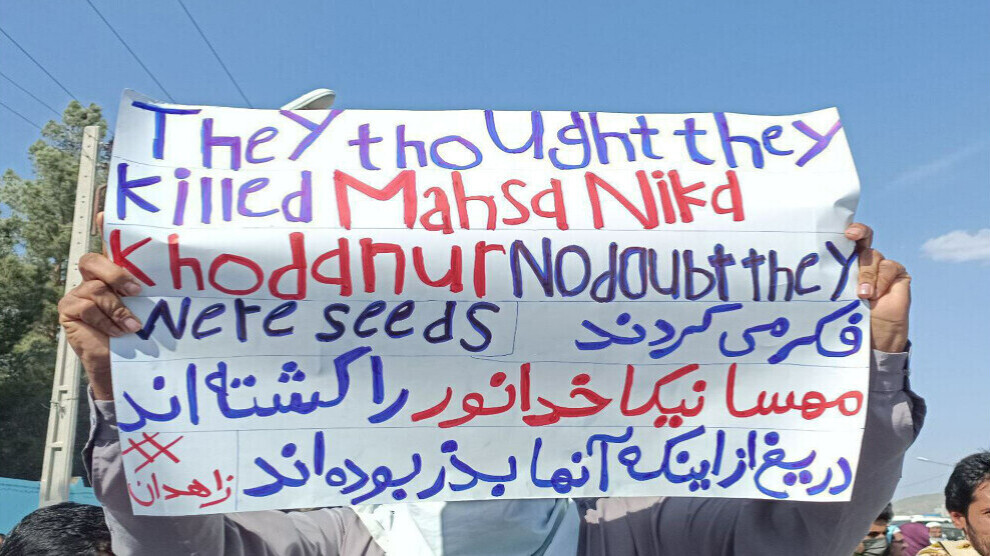 They thought they
killed Mahsa Nika
Khodanur No doubt they
were seeds
فکر می کردند
مهسا نیکا خدانور را کشته اند
دریغ از اینکه آنها بذر بوده اند
##
زاهدان